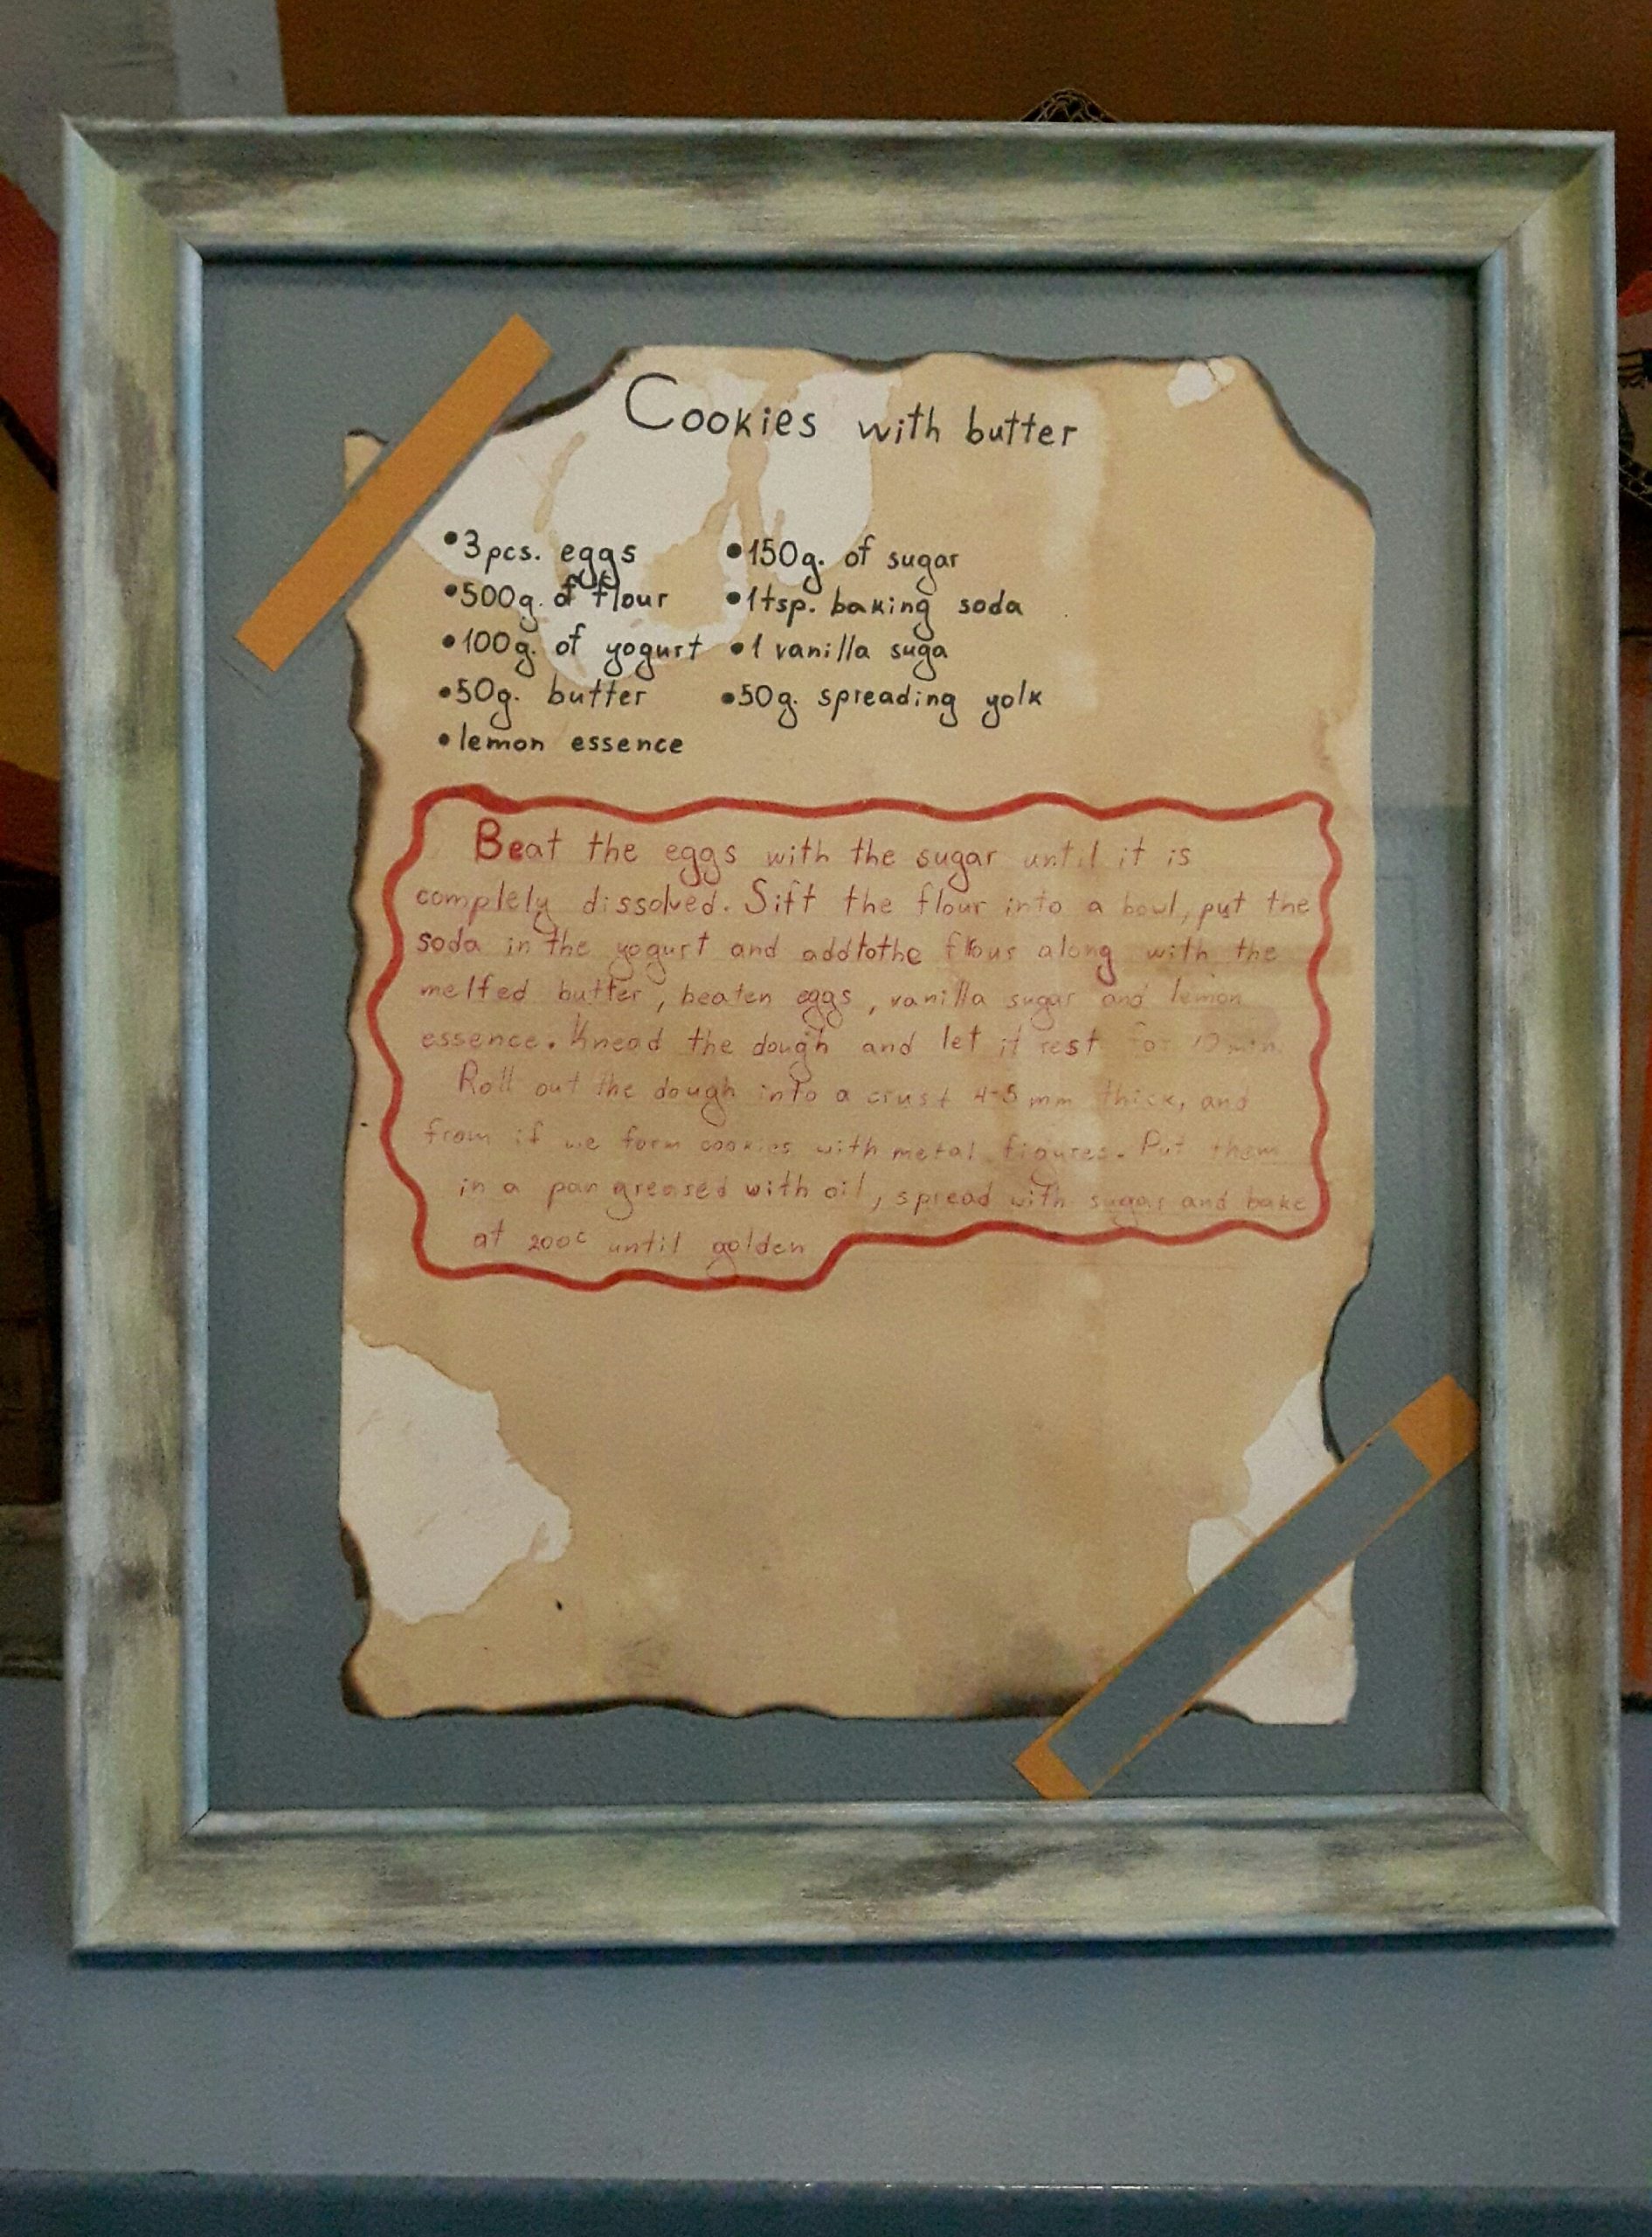 Cookies with butter
•3pcs. eggs
•500g. of flour
•100g. of yogurt
•50g. butter
•lemon essence
•150g. of sugar
•1tsp. baking soda
•1 vanilla suga
•50g. spreading yolk
Beat the eggs with the sugar until it is
complely dissolved. Sift the flour into a bowl, put the
soda in the yogurt and addtothe flour along with the
melted butter, beaten eggs, vanilla sugar and lemon
essence. Knead the dough and let it rest for 10 min.
Roll out the dough into a crust 4-5 mm thick, and
from it we form cookies with metal figures. Put them
in a pan greased with oil, spread with sugar and bake
at 200c until golden